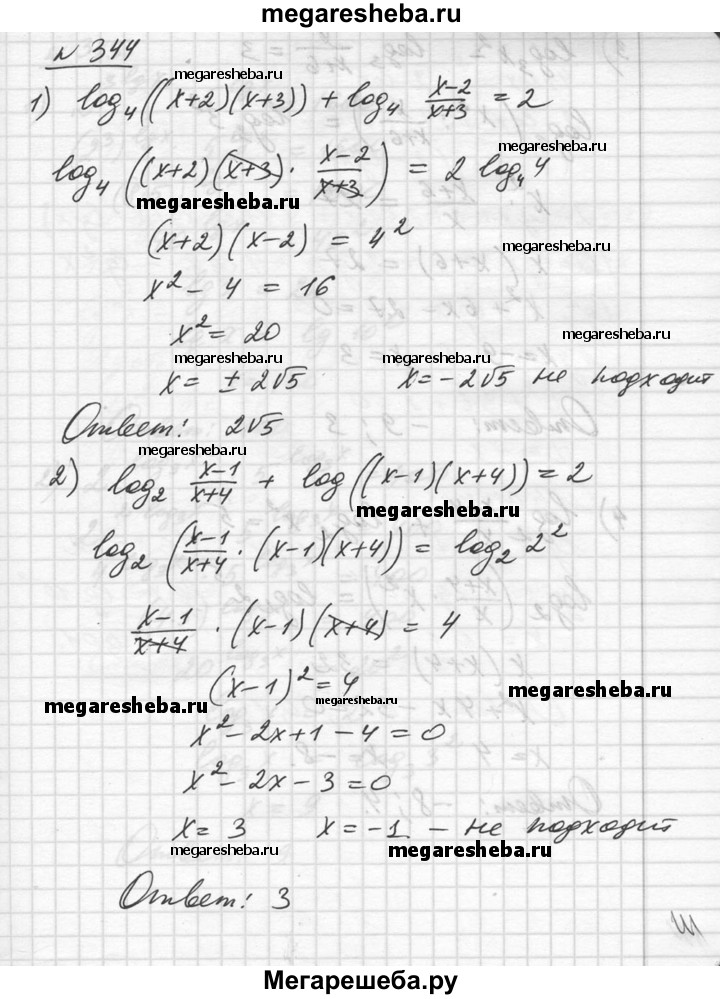 megaresheba.ru
№ 344
megaresheba.ru megaresheba.ru
1) log₄((x+2)(x+3)) + log₄ (x-2)/(x+3) = 2
megaresheba.ru
log₄((x+2)(x+3) · (x-2)/(x+3)) = 2 log₄ 4
megaresheba.ru
(x+2)(x-2) = 4²
megaresheba.ru
x² - 4 = 16
x² = 20
megaresheba.ru megaresheba.ru megaresheba.ru
x = ± 2√5 x = -2√5 не подходит
Ответ: 2√5
megaresheba.ru
2) log₂ (x-1)/(x+4) + log((x-1)(x+4)) = 2
megaresheba.ru
log₂((x-1)/(x+4) · (x-1)(x+4)) = log₂ 2²
megaresheba.ru
(x-1)/(x+4) · (x-1)(x+4) = 4
(x-1)² = 4
megaresheba.ru megaresheba.ru megaresheba.ru
x² - 2x + 1 - 4 = 0
x² - 2x - 3 = 0
x = 3 x = -1 - не подходит
megaresheba.ru megaresheba.ru
Ответ: 3
Мегарешеба.ру